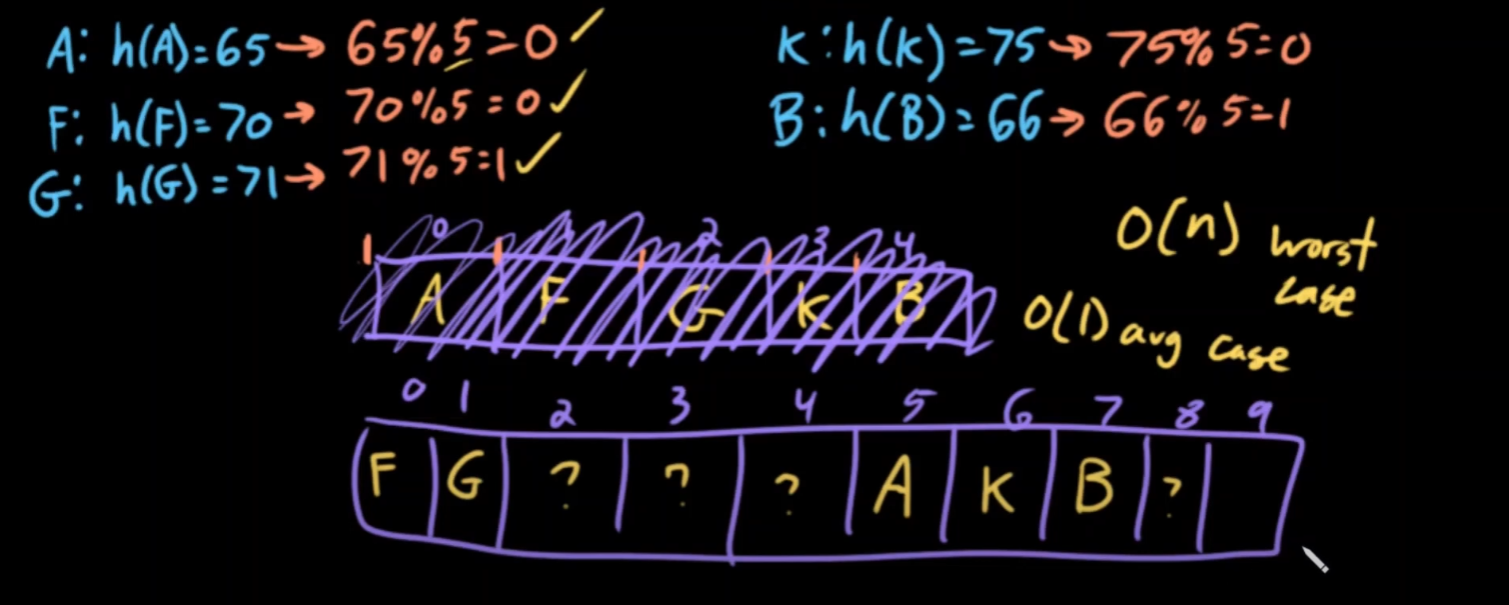 A: h(A)=65→ 65%5=0 ✓
F: h(F)=70 → 70%5=0 ✓
G: h(G)=71→ 71%5=1 ✓
K: h(K)=75→ 75% 5=0
B: h(B)=66→ 66% 5=1
0 1 2 3 4
A F G K B
O(n) worst
case
O(1) avg case
0 1 2 3 4 5 6 7 8 9
F G ? ? ? A K B ?